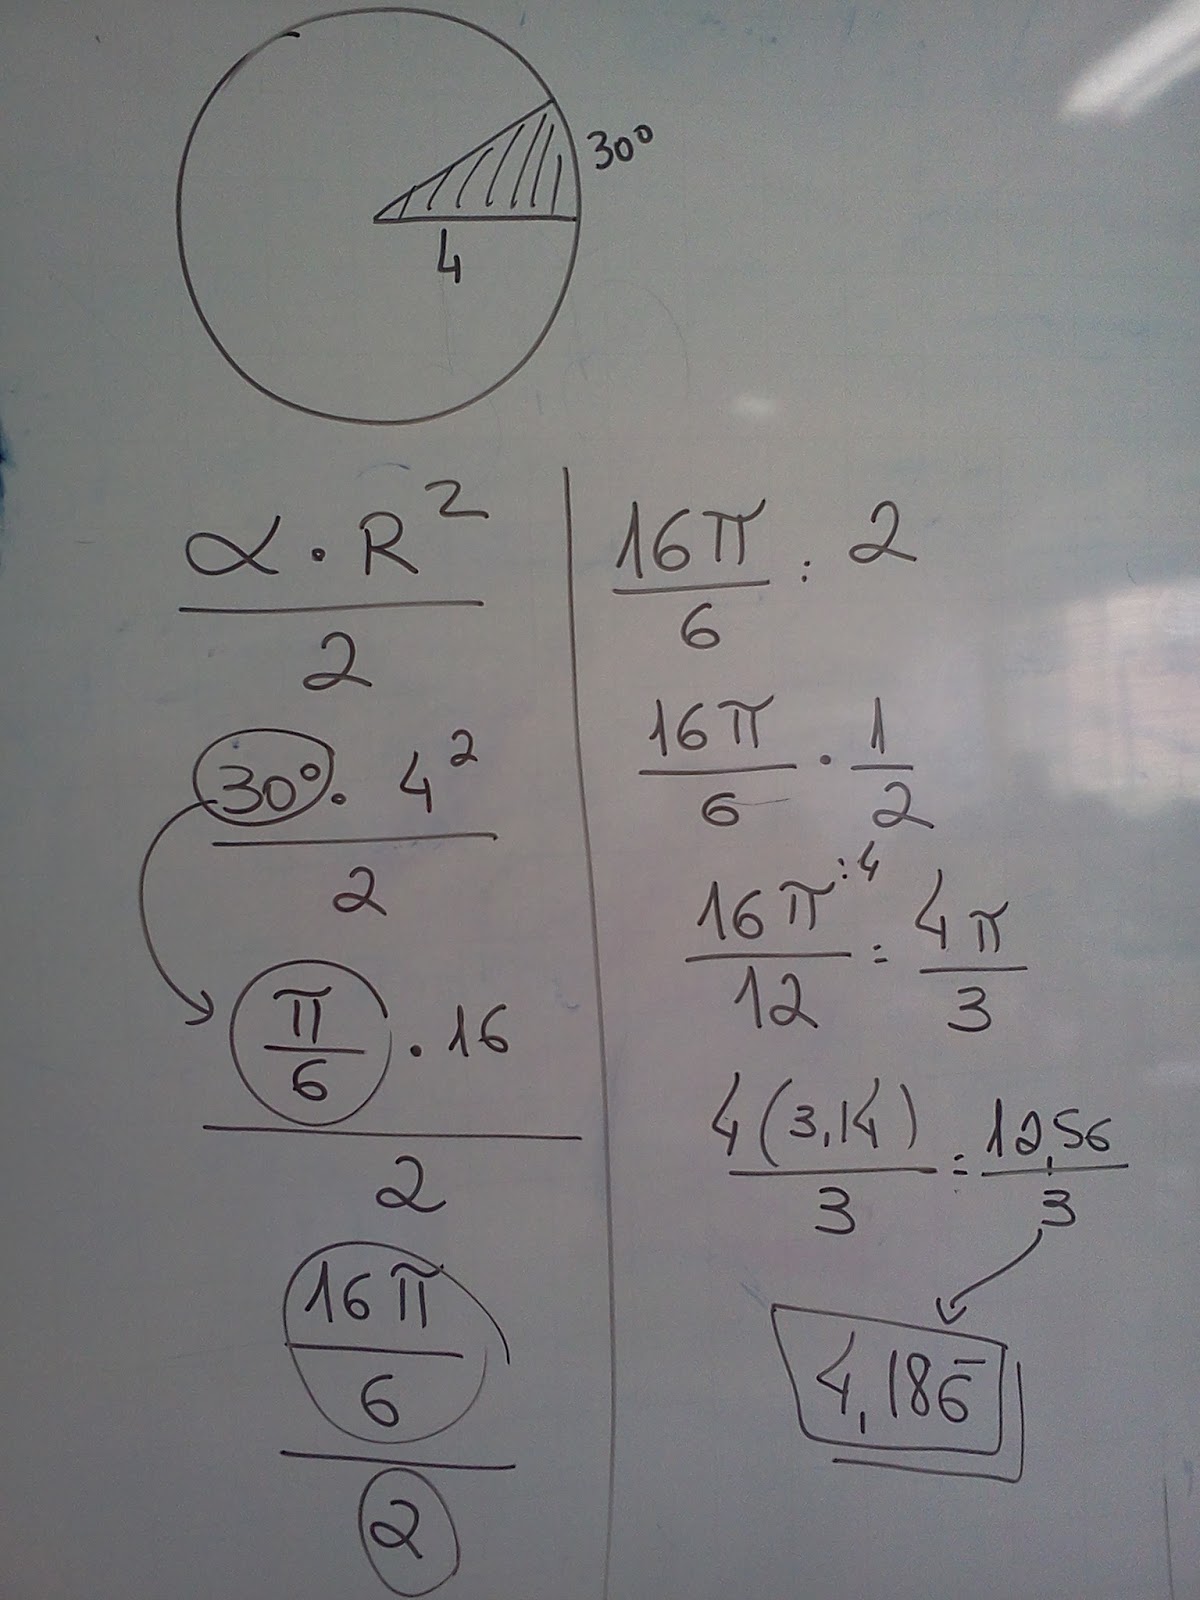 30°
4
α · R²
2
30° · 4²
2
π
6
· 16
2
16π
6
2
16π : 2
6
16π · 1
6 2
16π :4 = 4π
12 3
4(3,14) = 12,56
3 3
4,186̅